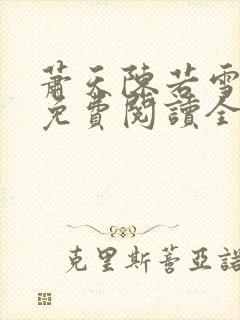 蕭天陳若雪
免費閱讀全
克里斯蒂亞諾